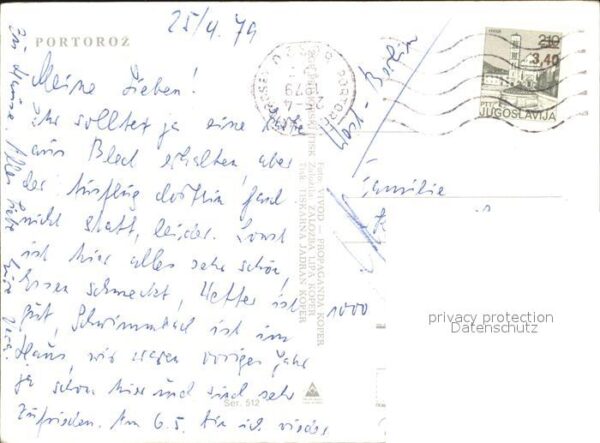 25/4. 79
PORTOROŽ
Meine Lieben!
Ihr solltet ja eine Karte
aus Bled erhalten, aber
der Ausflug dorthin fand
nicht statt, leider. Sonst
ist hier alles sehr schön,
Essen schmeckt, Wetter ist
gut, Schwimmbad ist im
Haus, wir waren voriges Jahr
ja schon hier und sind sehr
zufrieden. Am 6.5. bin ich wieder
zu Hause. Alles Liebe
PORTOROŽ
2,10
3,40
PTT
JUGOSLAVIJA
Berlin
Familie
1000
Foto: VIVOD — PROPAGANDA KOPER
Založila: ZALOŽBA LIPA KOPER
Tisk: TISKARNA JADRAN KOPER
Ser. 512
privacy protection
Datenschutz